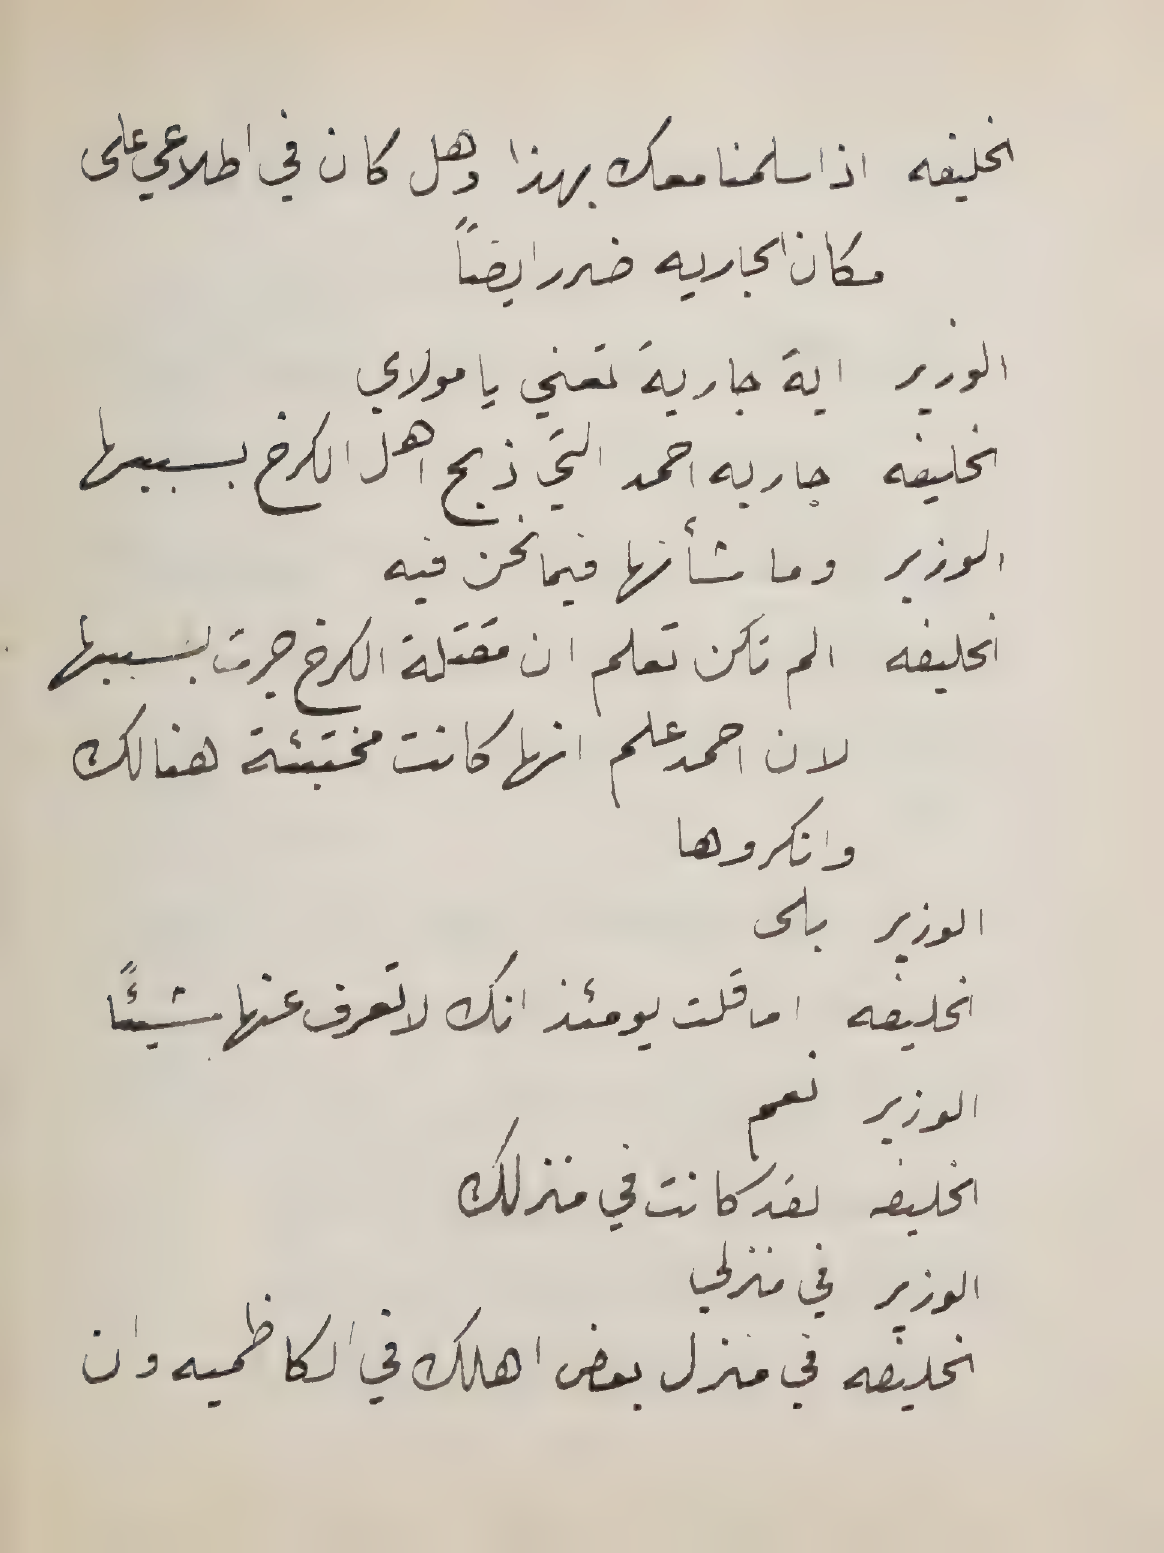 الخليفه اذا سلمنا معك بهذا وهل كان في اطلاعي على
مكان الجاريه ضرر ايضاً
الوزير اية جارية تعني يا مولاي
الخليفه جاريه احمد التي ذبح اهل الكرخ بسببها
الوزير وما شأنها فيما نحن فيه
الخليفه الم تكن تعلم ان مقتلة الكرخ جرت بسببها
لان احمد علم انها كانت مختبئة هنالك
وانكروها
الوزير بلى
الخليفه اما قلت يومئذ انك لا تعرف عنها شيئًا
الوزير نعم
الخليفه لقد كانت في منزلك
الوزير في منزلي
الخليفه في منزل بعض اهلك في الكاظميه وان